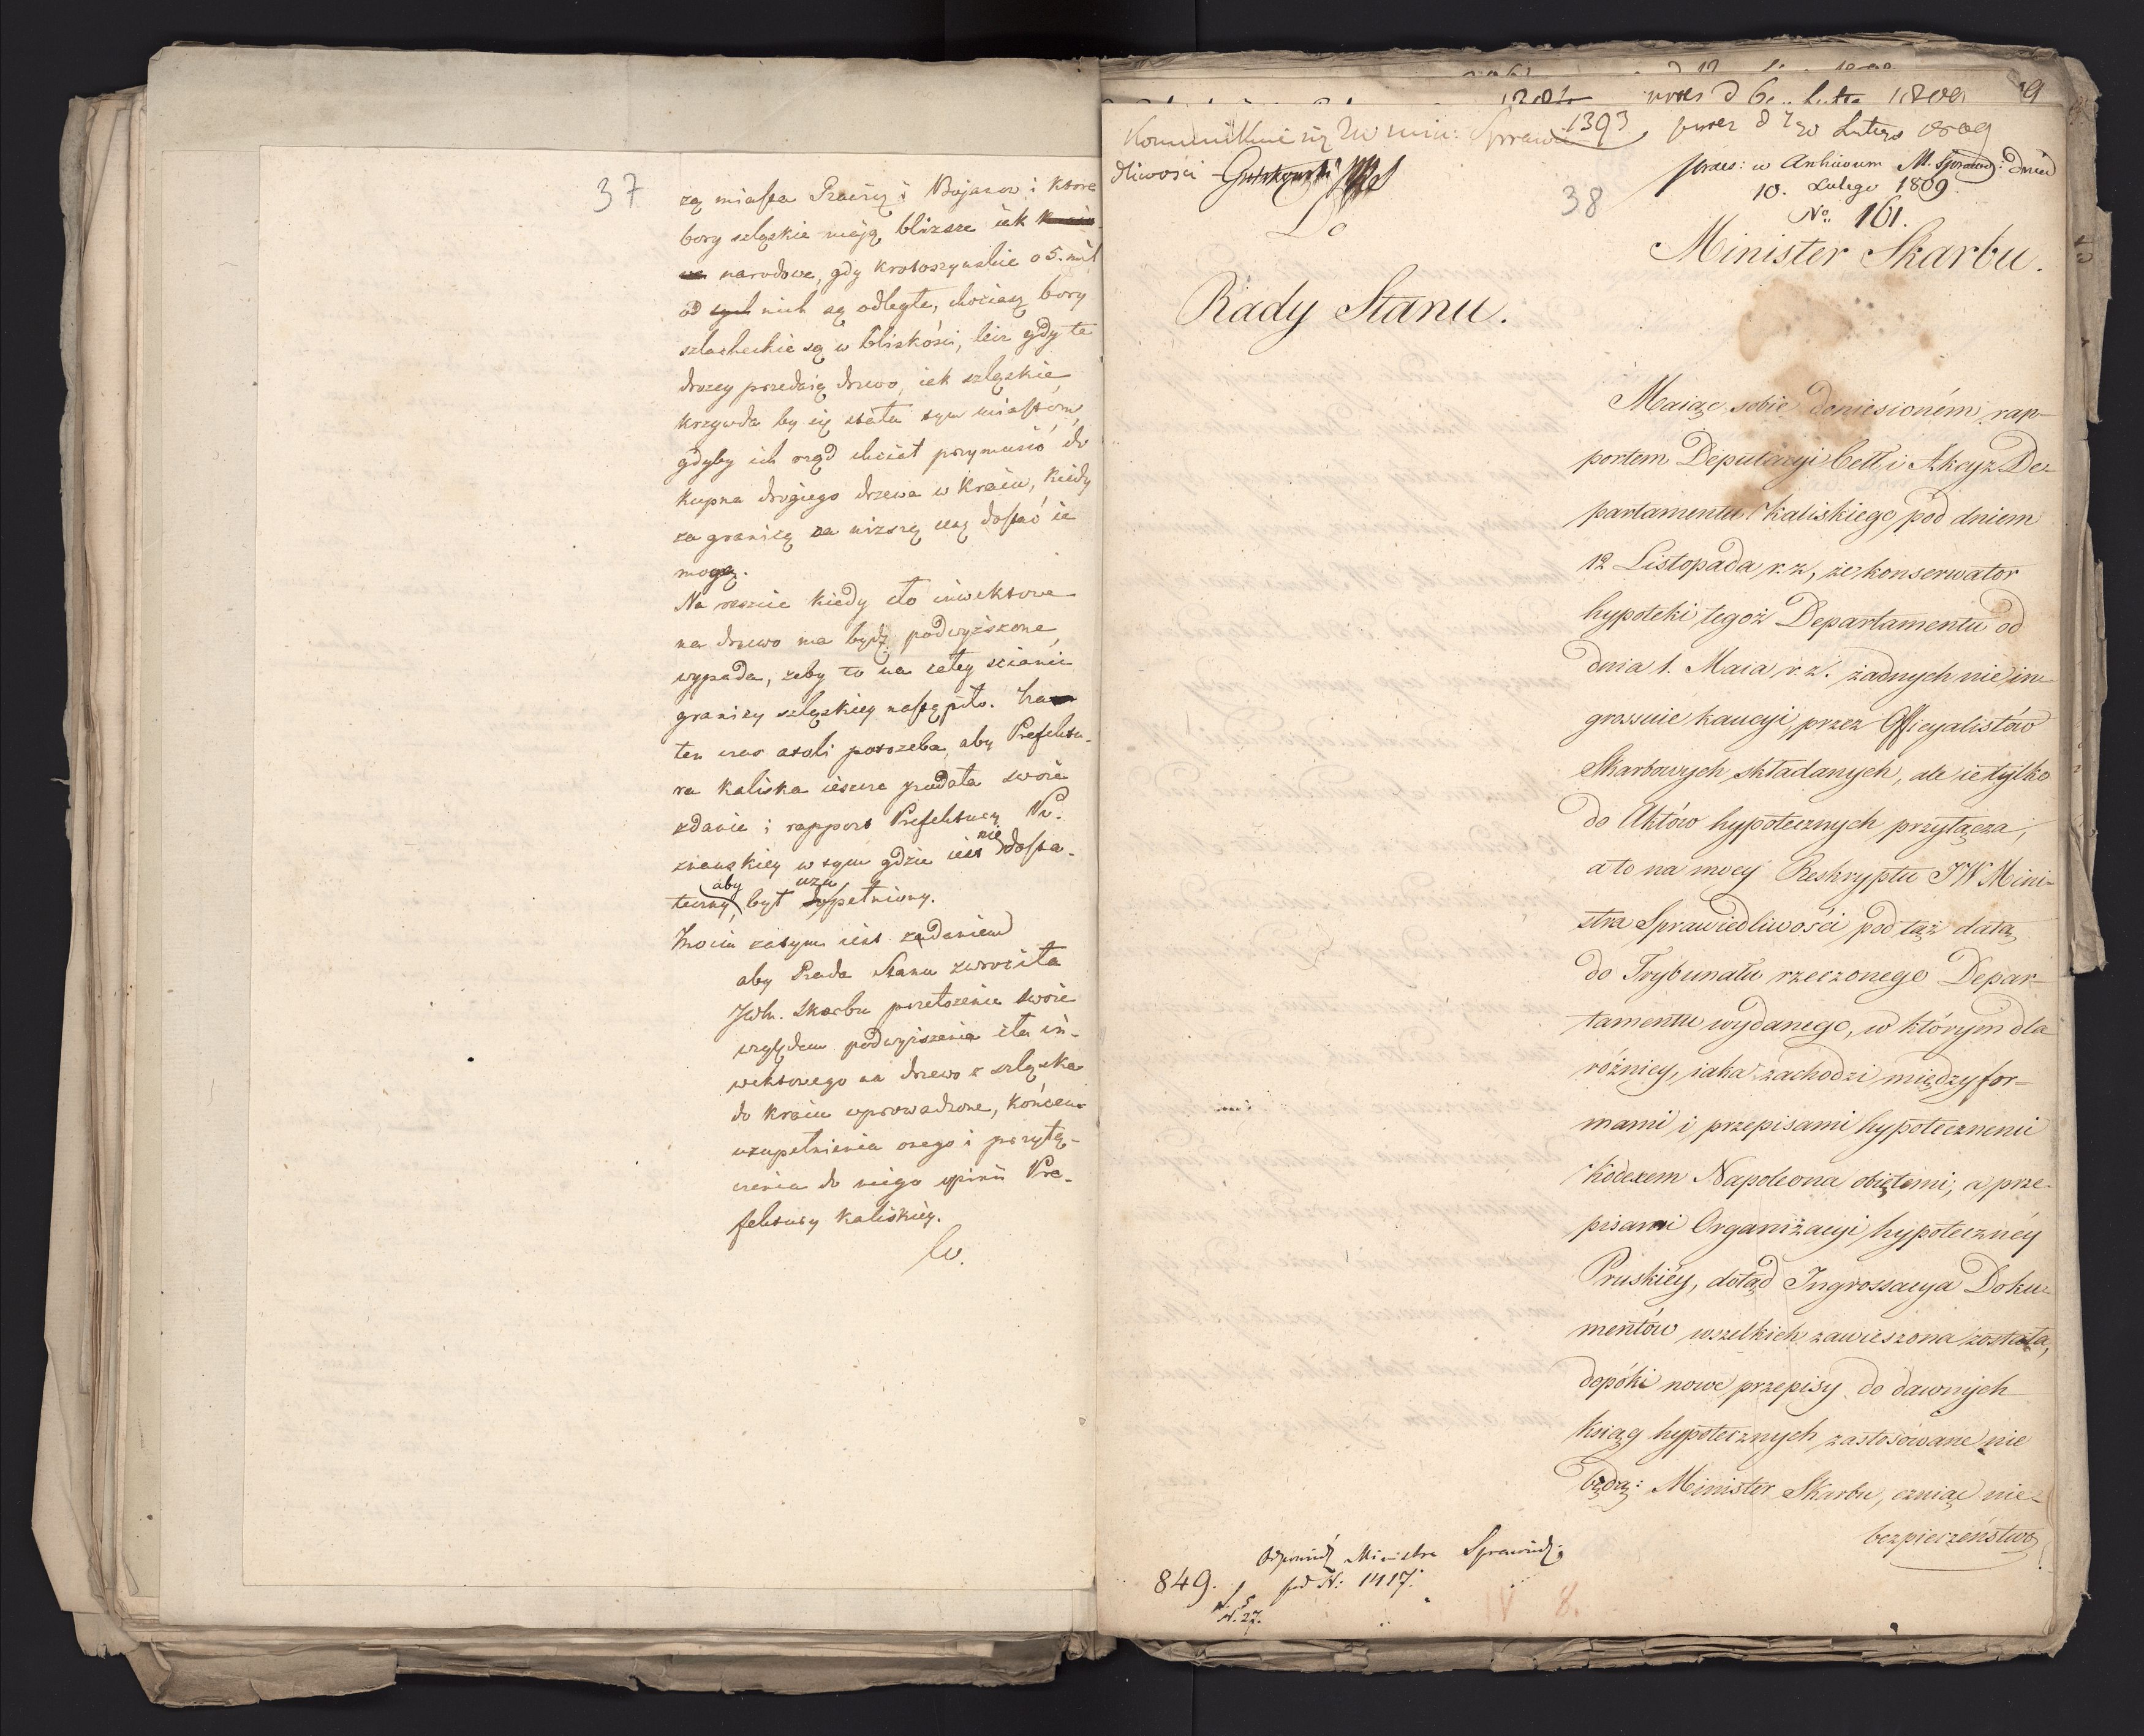 37
są miasta Rawicz i Bojanow i ktore
bory szląskie maią bliższe iak
narodowe, gdy Krotoszynskie o 5. mil
od nich są odległe, chociasz bory
szlacheckie są w bliskości, lecz gdy te
drożey przedaią drzewo, iak szląskie,
krzywda by się stała tym miastom,
gdyby ich rząd chciał przymusić do
kupna drogiego drzewa w kraiu, kiedy
za granicą za niższą cenę dostać ie
mogą.
Na reszcie kiedy cło inwektowe
na drzewo ma bydź podwyższone,
wypada, żeby to na całey scianie
granicy szląskiey nastąpiło. Na
ten czas atoli potrzeba, aby Prefektu-
ra Kaliska ieszcze podała swoie
zdanie i rapport Prefektury Po-
znanskiey w tym gdzie iest nie dosta-
teczny, aby był uzupełniony.
Moim zatym iest zdaniem
aby Rada Stanu zwrociła
JWM. Skarbu przełożenie swoie
względem podwyższenia cła in-
wektowego na drzewo z szląska
do kraiu wprowadzone, końcem
uzupełnienia onego i przyłą-
czenia do niego opinii Pre-
fektury Kaliskiey.
1393 praes d 7go Lutego 1809
Kommunikuie się JW minis: Sprawie
dliwości Gutakowski
praes: w Archivum M. Sprawied: Dnia
10. Lutego 1809.
No. 161.
38
Do
Rady Stanu.
Minister Skarbu.
Maiąc sobie doniesioném rap-
portem Deputacyi Ceł i Akcyz De-
partamentu Kaliskiego pod dniem
12 Listopada r. z., że konserwator
hypoteki tegoż Departamentu od
dnia 1. Maia r. z. żadnych nie in-
grossuie kaucyi, przez Officyalistów
Skarbowych składanych, ale ie tylko
do Aktów hypotecznych przyłącza;
a to na mocy Reskryptu JW Mini-
stra Sprawiedliwości pod taż datą
do Trybunału rzeczonego Depar-
tamentu wydanego, w którym dla
różnicy, iaka zachodzi między for-
mami i przepisami hypotecznemi
Kodexem Napoleona obiętemi, a prze-
pisami Organizacyi hypotecznéy
Pruskiéy, dotąd Ingrossacya Doku-
mentów wszelkich zawieszona została,
dopóki nowe przepisy do dawnych
ksiąg hypotecznych zastosowane nie
będą: Minister Skarbu, czuiąc nie-
bezpieczeństwo
Odpowiedź Ministra Sprawiedl:
pod N: 1417.
849.
N. 27.
IV 8.